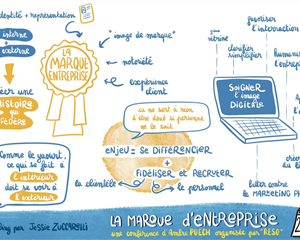 identité + représentation
interne
+
externe
LA
MARQUE
ENTREPRISE
"image de marque"
notoriété
expérience
client
créer une
Histoire
qui
FÉDÈRE
Comme le yaourt,
ce qui se fait à
l'intérieur
doit se voir à
l'extérieur
ça ne sert à rien
d'être doué si personne
ne le sait
ENJEU = SE DIFFÉRENCIER
+
FIDÉLISER et RECRUTER
la clientèle
le personnel
vitrine
clarifier
simplifier
favoriser
l'interaction
SOIGNER
l'image
DIGITALE
lutter contre
MARKETING
par Jessie ZUCCARELLI
LA MARQUE d'ENTREPRISE
une conférence d'André PUECH organisée par "RESO"